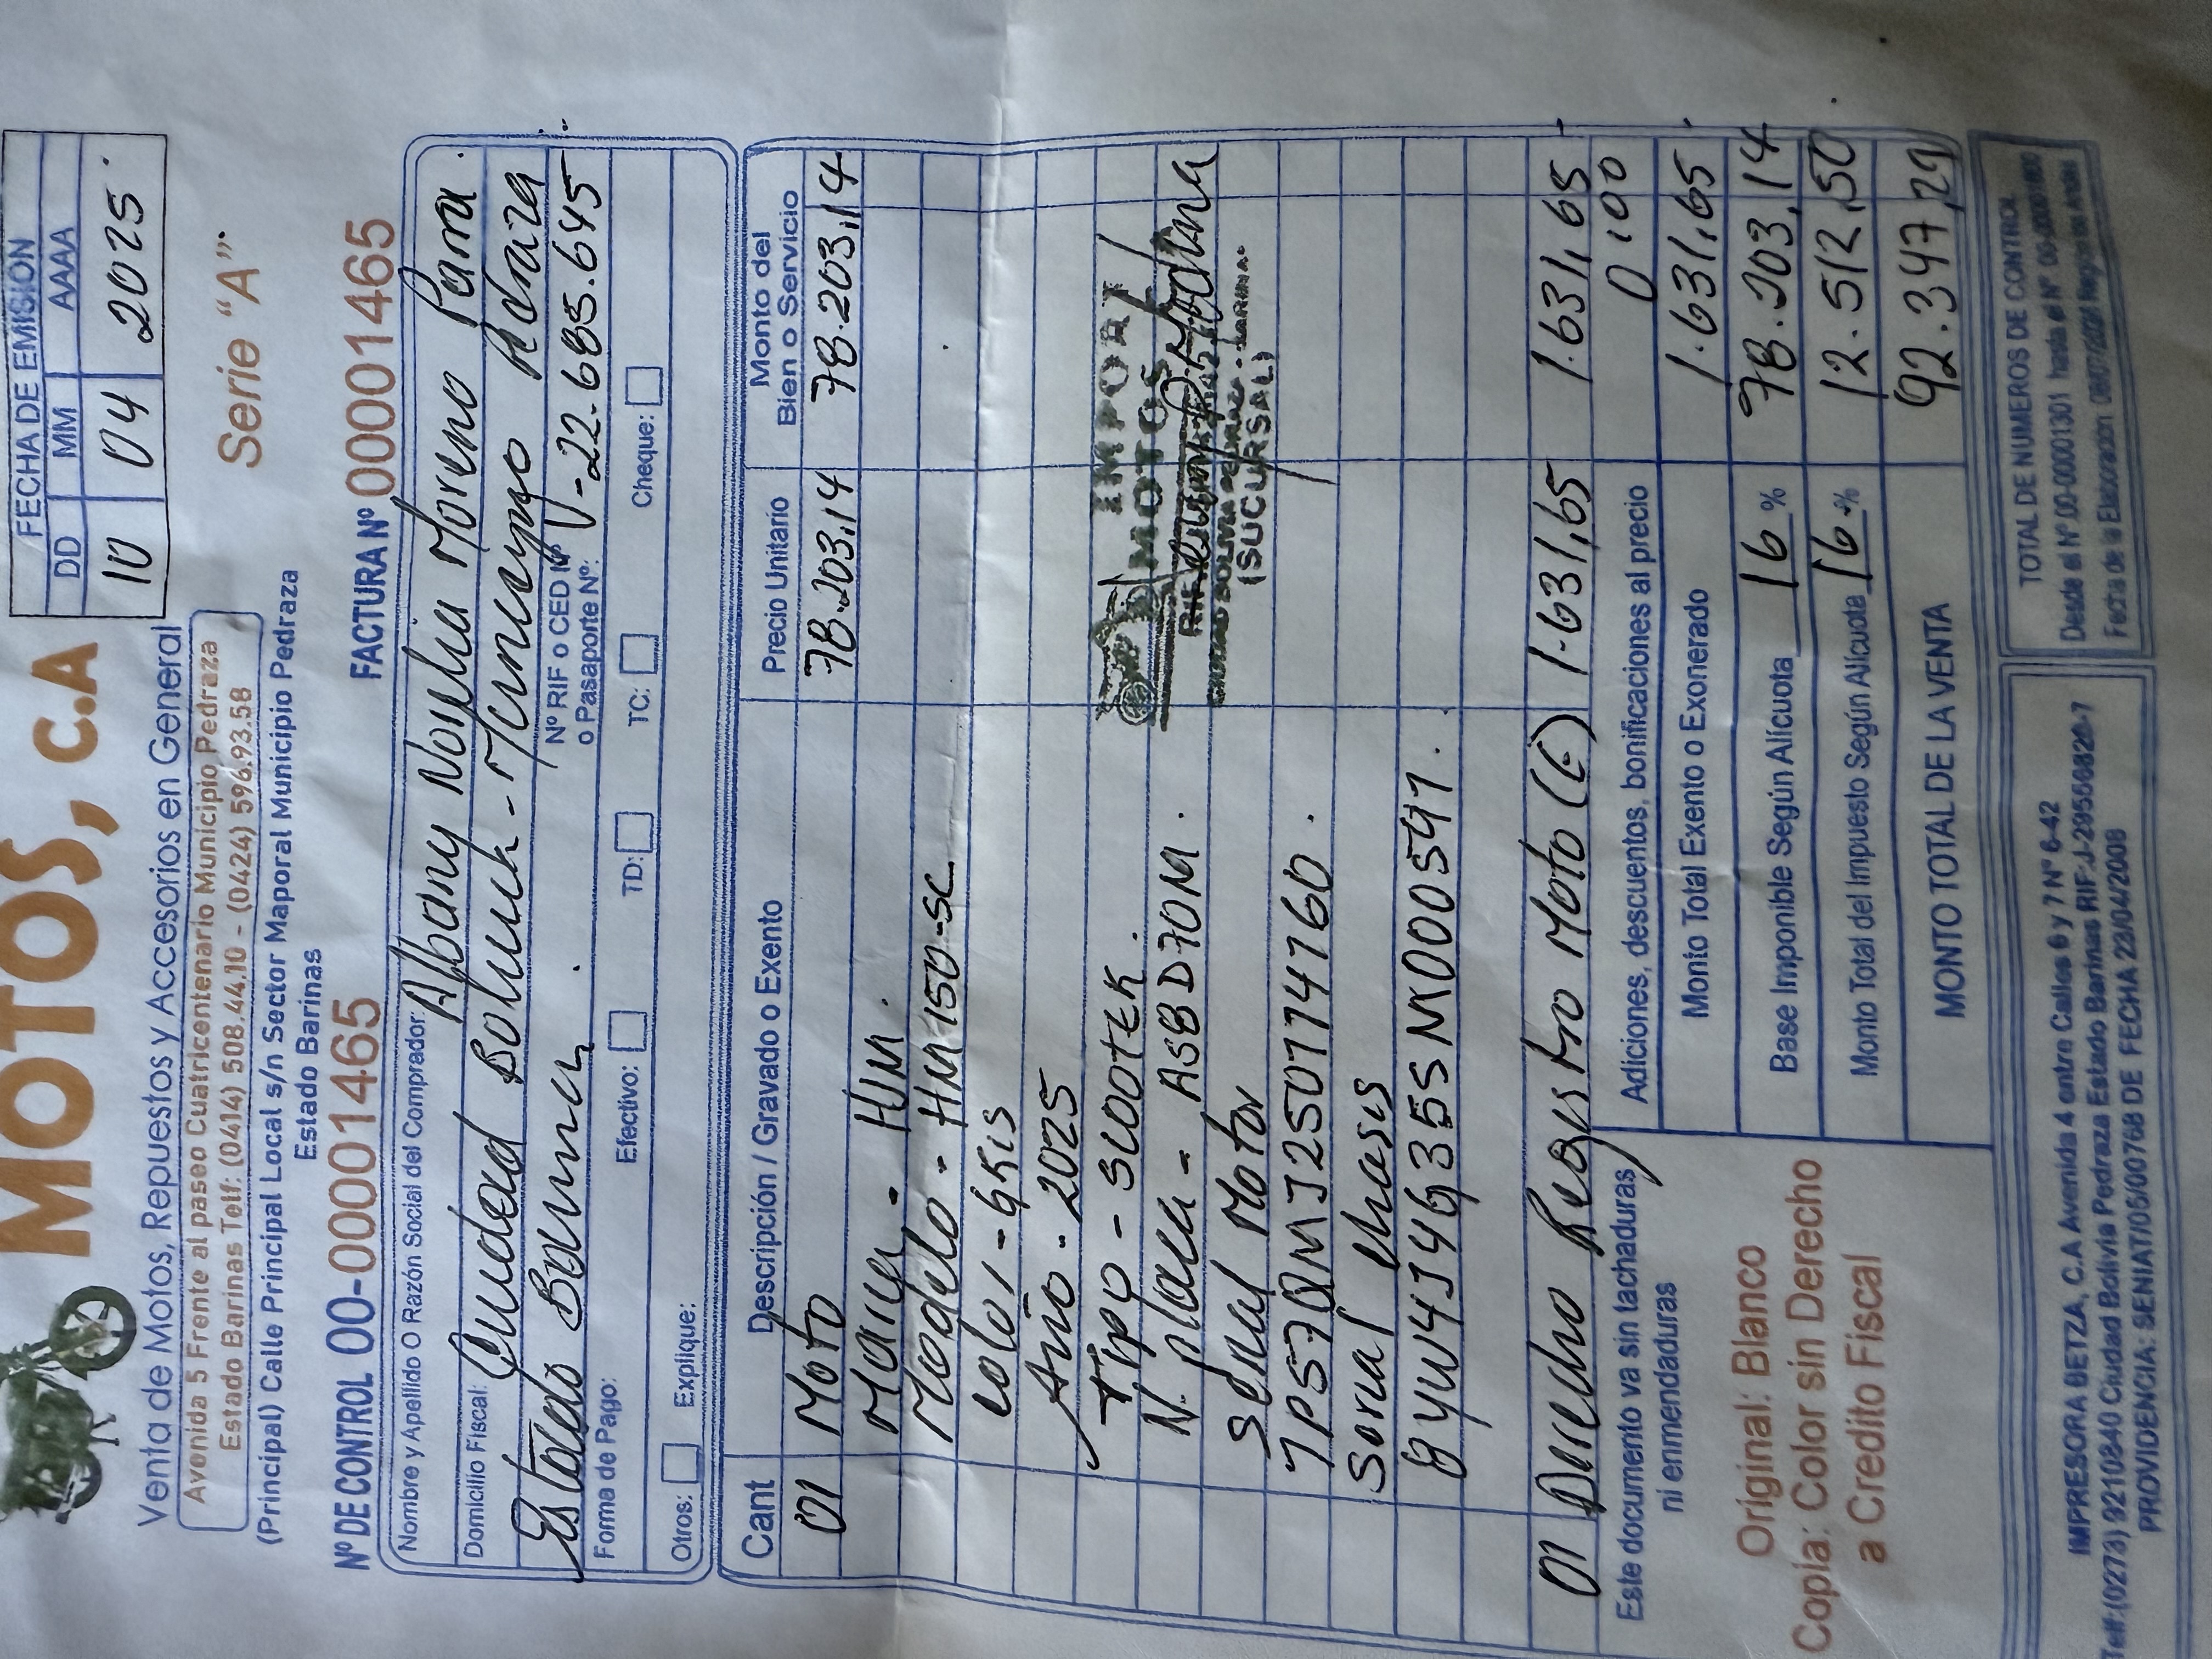 MOTOS, C.A
FECHA DE EMISION
DD MM AAAA
10 04 2025
Venta de Motos, Repuestos y Accesorios en General
Avenida 5 Frente al paseo Cuatricentenario Municipio Pedraza
Estado Barinas Telf: (0414) 508.44.10 - (0424) 596.93.58
(Principal) Calle Principal Local s/n Sector Maporal Municipio Pedraza
Estado Barinas
Serie "A"
Nº DE CONTROL 00-00001465
FACTURA Nº 00001465
Nombre y Apellido O Razón Social del Comprador: Albany Moreno Parra
Domicilio Fiscal: Ciudad Bolivia - Municipio Pedraza
Estado Barinas
Nº RIF o CED Nº o Pasaporte Nº: V-22.685.645
Forma de Pago: Efectivo: TD: TC: Cheque:
Otros: Explique:
Cant Descripción / Gravado o Exento Precio Unitario Monto del Bien o Servicio
01 Moto 78.203,14 78.203,14
Marca - HJM.
Modelo - HM-150-SC
Color - Gris
Año - 2025
Tipo - SCOOTER.
N. Placa - A58D70M.
IMPORT
MOTOS
Serial Motor
(SUCURSAL)
1P57QMJ250174760.
Serial Chasis
8YU4J4G3555M000597.
01 Derecho Registro Moto (E) 1.631,65 1.631,65
Este documento va sin tachaduras
ni enmendaduras
Adiciones, descuentos, bonificaciones al precio 0,00
Monto Total Exento o Exonerado 1.631,65
Base Imponible Según Alícuota 16 % 78.203,14
Monto Total del Impuesto Según Alícuota 16 % 12.512,50
MONTO TOTAL DE LA VENTA 92.347,29
Original: Blanco
Copia: Color sin Derecho
a Credito Fiscal
IMPRESORA BETZA, C.A Avenida 4 entre Calles 6 y 7 Nº 6-42
Telf:(0273) 9210840 Ciudad Bolivia Pedraza Estado Barinas RIF:J-29556820-7
PROVIDENCIA: SENIAT/05/00768 DE FECHA 23/04/2008
TOTAL DE NUMEROS DE CONTROL
Desde el Nº 00-00001301 hasta el Nº
Fecha de la Elaboración